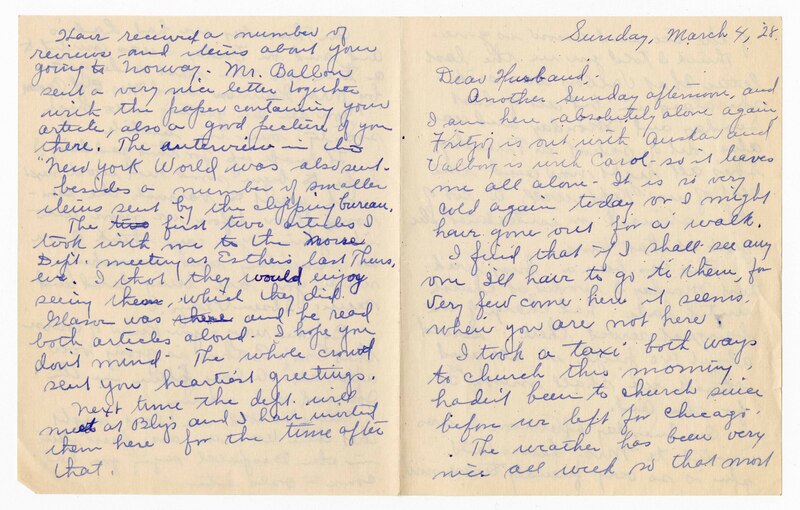 Sunday, March 4, '28.
Dear Husband,-
Another Sunday afternoon, and
I am here absolutely alone again
Fritjof is out with and
Valborg is with Carol - so it leaves
me all alone - It is so very
cold again today or I might
have gone out for a walk.
I find that if I shall see any
one I'll have to go to them, for
very few come here it seems.
when you are not here.
I took a taxi both ways
to church this morning.
hadn't been to church since
before we left for Chicago.
The weather has been very
nice all week so that most
Have received a number of
reviews and items about your
going to Norway. Mr. Ballou
sent a very nice letter together
with the paper containing your
article, also a good picture of you
there. The interview in
"New York World was also sent.
besides a number of smaller
items sent by the clipping bureau.
The two first two articles I
took with me to the Norse
Dept. meeting at Esther's last Thurs.
eve. I thot they would enjoy
seeing them, which they did.
was there and he read
both articles aloud. I hope you
don't mind. The whole crowd
sent you heartiest greetings.
Next time the dept. will
meet at and I have invited
them here for the time after
that.